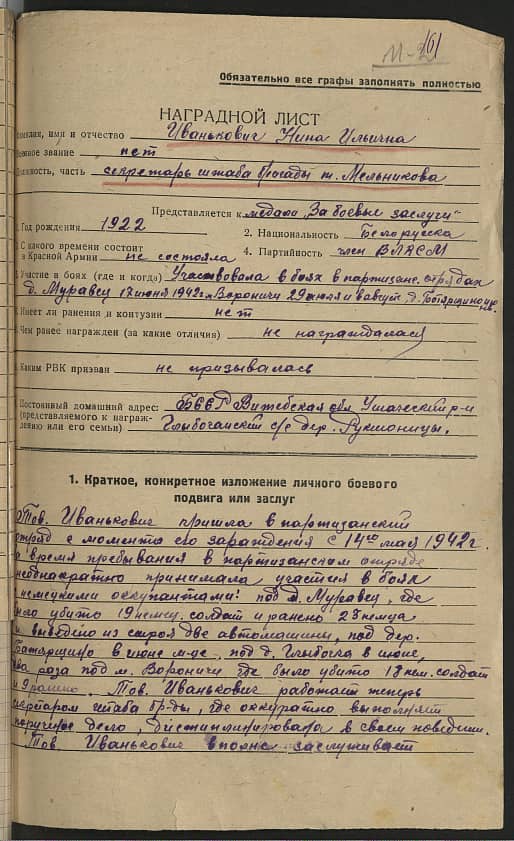 161
Обязательно все графы заполнять полностью
НАГРАДНОЙ ЛИСТ
Фамилия, имя и отчество Иванькович Нина Ильична
звание нет
Должность, часть секретарь штаба бригады т. Мельникова
Представляется к медали „За боевые заслуги"
1. Год рождения 1922 2. Национальность Белоруска
3. С какого времени состоит
в Красной Армии не состояла 4. Партийность член ВЛКСМ
5. Участие в боях (где и когда) Участвовала в боях в партизанс. отрядах
д. Муравец 17 июня 1942 г. Вороничи 29 июля и 1 август. д.
6. Имеет ли ранения и контузии нет
7. Чем ранее награжден (за какие отличия) не награждалась
8. Каким РВК призван не призывалась
9. Постоянный домашний адрес: БССР Витебская обл Ушачский р-н
(представляемого к награждению или его семьи) Глыбочанский с/с дер.
1. Краткое, конкретное изложение личного боевого
подвига или заслуг
Тов. Иванькович пришла в партизанский
отряд с момента его зараждения с 14го мая 1942 г.
За время пребывания в партизанском отряде
неоднакратно принимала участия в боях
с немецкими оккупантами: под д. Муравец, где
было убито 19 немец. солдат и ранено 2 немца
и выведено из строя две автомашины, под дер.
в июне м-це, под д. Глыбочка в июне,
два раза под м. Вороничи где было убито 18 нем. солдат
и 9 ранено. Тов. Иванькович работает теперь
секретаром штаба бр-ды, где аккуратно выполняет
порученое дело, дистиплинирована в своем поведении.
Тов. Иванькович вполне заслуживает